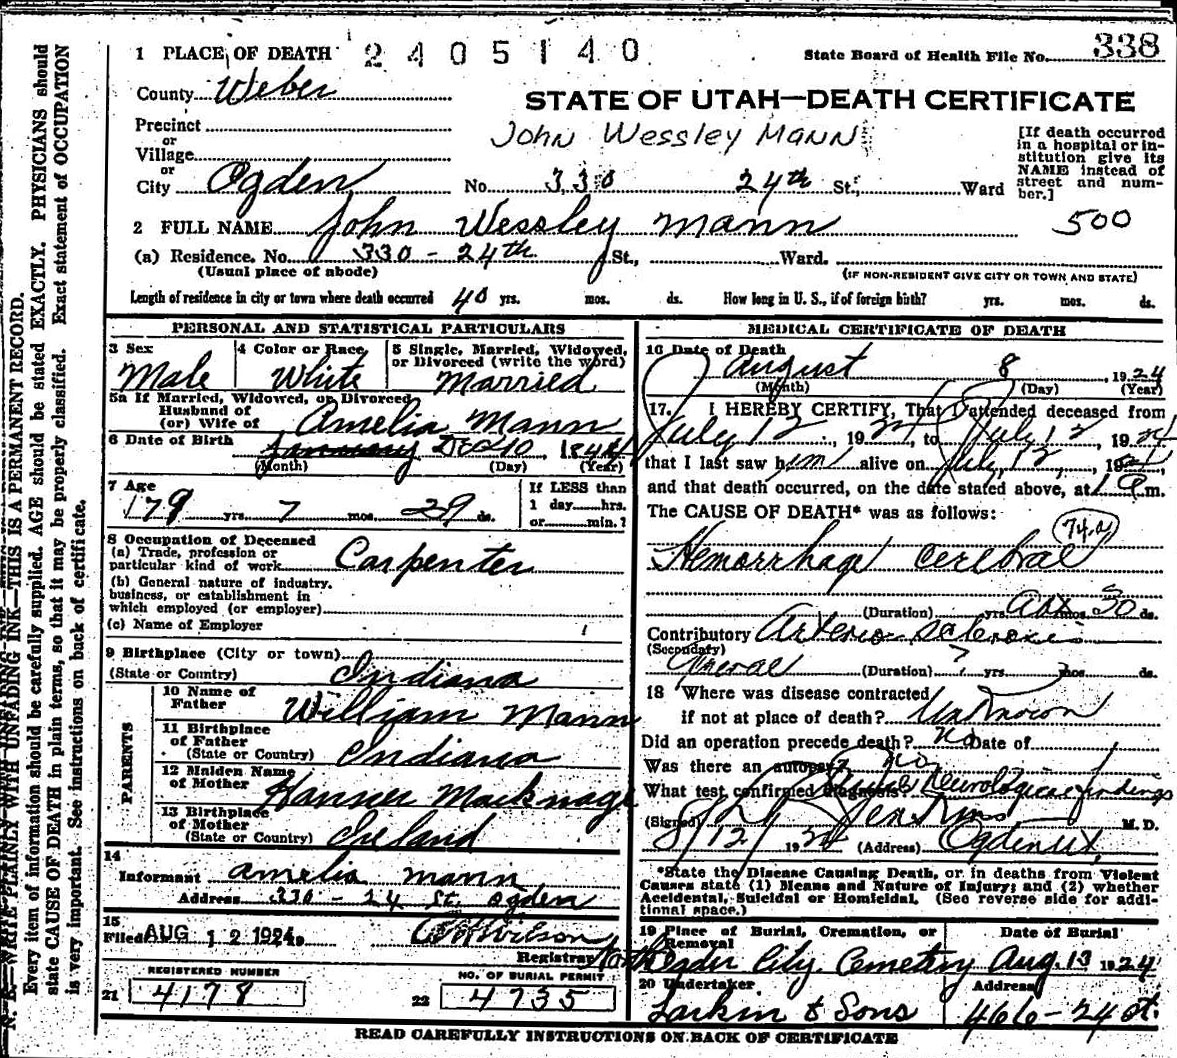 1 PLACE OF DEATH 2405140 State Board of Health File No. 338
County Weber
STATE OF UTAH—DEATH CERTIFICATE
Precinct
or
Village
John Wessley Mann
[If death occurred in a hospital or in-
stitution give its
NAME instead of
street and num-
ber.]
or
City Ogden No. 330 24th St., Ward
500
2 FULL NAME John Wessley Mann
(a) Residence. No. 330 - 24th St., Ward.
(Usual place of abode) (IF NON-RESIDENT GIVE CITY OR TOWN AND STATE)
Length of residence in city or town where death occurred 40 yrs. mos. ds. How long in U. S., if of foreign birth? yrs. mos. ds.
PERSONAL AND STATISTICAL PARTICULARS
3 Sex Male
4 Color or Race White
5 Single, Married, Widowed, or Divorced (write the word) Married
5a If Married, Widowed, or Divorced
Husband of
(or) Wife of Amelia Mann
6 Date of Birth January Dec 10 1844
(Month) (Day) (Year)
7 Age
79 yrs. 7 mos. 29 ds.
If LESS than
1 day hrs.
or min.?
8 Occupation of Deceased
(a) Trade, profession or
particular kind of work Carpenter
(b) General nature of industry,
business, or establishment in
which employed (or employer)
(c) Name of Employer
9 Birthplace (City or town)
(State or Country) Indiana
PARENTS
10 Name of
Father William Mann
11 Birthplace
of Father
(State or Country) Indiana
12 Maiden Name
of Mother
13 Birthplace
of Mother
(State or Country) Ireland
14
Informant Amelia Mann
Address 330 - 24 St. Ogden
15
Filed AUG 12 1924 Wilson
Registrar
REGISTERED NUMBER
21 4178
NO. OF BURIAL PERMIT
22 4735
MEDICAL CERTIFICATE OF DEATH
16 Date of Death
August 8, 1924
(Month) (Day) (Year)
17. I HEREBY CERTIFY, That I attended deceased from
July 12, 1924, to July 12, 1924
that I last saw him alive on July 12, 1924,
and that death occurred, on the date stated above, at 1 P.m.
The CAUSE OF DEATH* was as follows:
74-a
Hemorrhage cerebral
(Duration) yrs. mos. 30 ds.
Contributory Arterio-sclerosis
(Secondary)
(Duration) ? yrs. ? mos. ds.
18 Where was disease contracted
if not at place of death? Unknown
Did an operation precede death? no Date of
Was there an autopsy? no
What test confirmed diagnosis? Neurological findings
(Signed) Jenkins M. D.
8/12/1924 (Address) Ogden Ut.
*State the Disease Causing Death, or in deaths from Violent
Causes state (1) Means and Nature of Injury; and (2) whether
Accidental, Suicidal or Homicidal. (See reverse side for addi-
tional space.)
19 Place of Burial, Cremation, or
Removal
Date of Burial
Ogden City Cemetery Aug. 13 1924
20 Undertaker
Larkin & Sons
Address
466 - 24 St.
READ CAREFULLY INSTRUCTIONS ON BACK OF CERTIFICATE
N. B.—WRITE PLAINLY WITH UNFADING INK—THIS IS A PERMANENT RECORD.
Every item of information should be carefully supplied. AGE should be stated EXACTLY. PHYSICIANS should
state CAUSE OF DEATH in plain terms, so that it may be properly classified. Exact statement of OCCUPATION
is very important. See instructions on back of certificate.